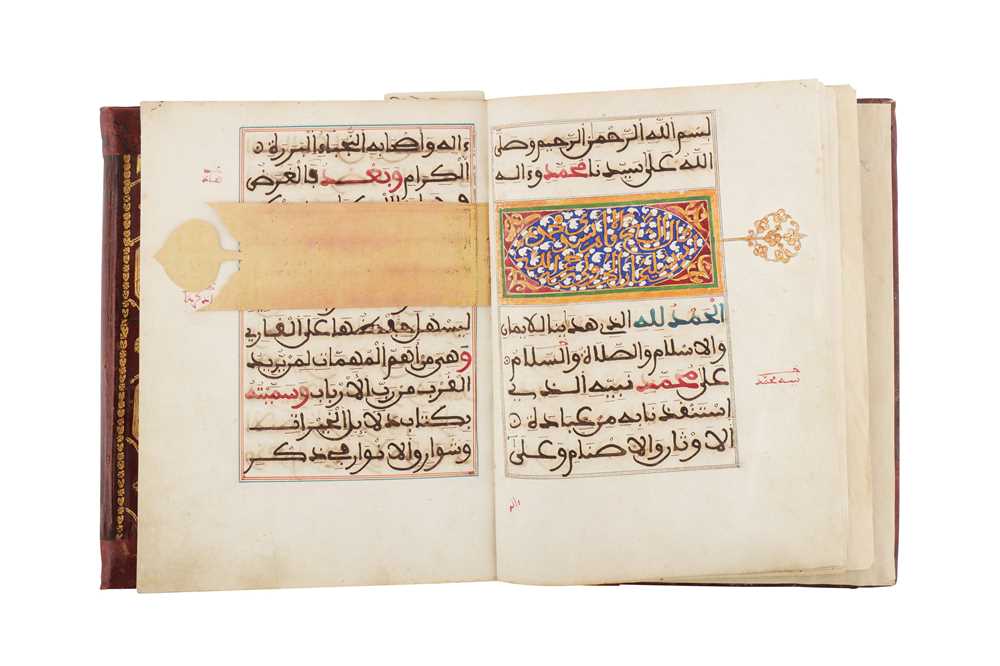 بسم الله الرحمن الرحيم وصلى
الله على سيدنا محمد وءاله
الحمد لله الذي هدينا للايمان
والاسلام والصلاة والسلام
على محمد نبيه الذي
استنقذنا به من عبادة
الاوثان والاصنام وعلى
ءاله
ءاله واصحابه النجباء البررة
الكرام وبعد فالغرض
ليسهل حفظها على القاري
وهي من اهم المهمات لمن يريد
القرب من رب الارباب وسميته
بكتاب دلايل الخيرات
وشوارق الانوار في ذكر